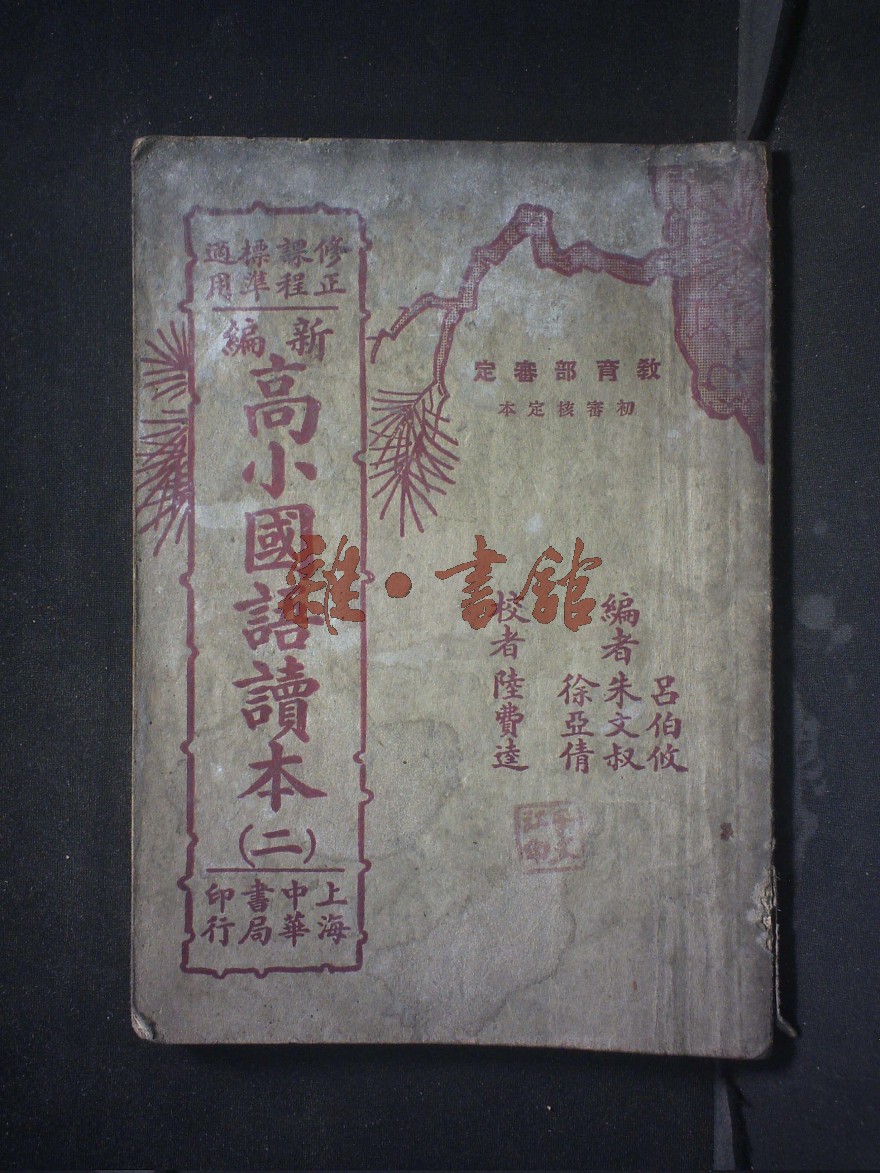 修正
課程
標準
適用
新編
高小國語讀本
(二)
上海
中華
書局
印行
教育部審定
初審核定本
編者
呂伯攸
朱文叔
徐亞倩
校者 陸費逵
雜·書館